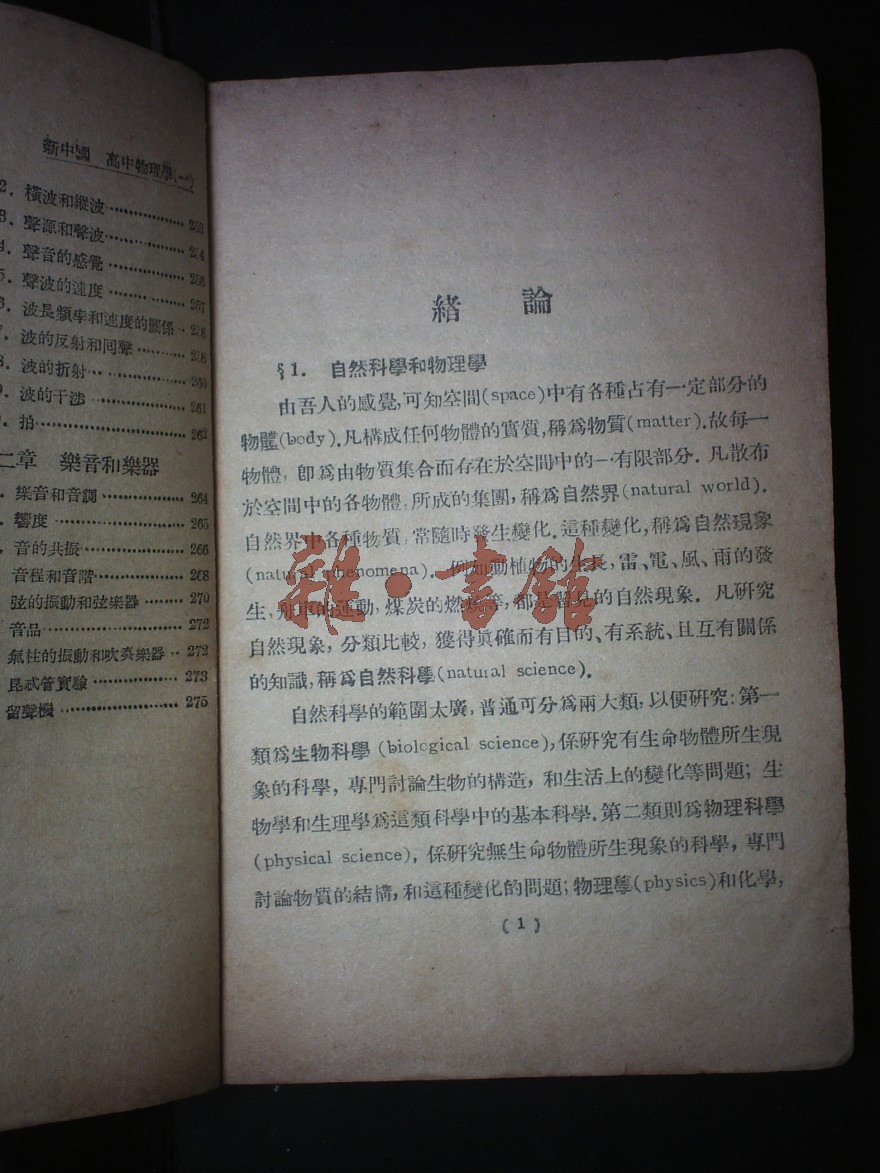 新中國 高中物理學(一)
2. 橫波和縱波 253
3. 聲源和聲波 254
4. 聲音的感覺 256
5. 聲波的速度 257
6. 波長頻率和速度的關係 258
7. 波的反射和回聲 258
8. 波的折射 260
9. 波的干涉 261
拍 262
二章 樂音和樂器
樂音和音調 264
響度 265
音的共振 266
音程和音階 268
弦的振動和弦樂器 270
音品 272
氣柱的振動和吹奏樂器 272
昆式管實驗 273
留聲機 275
緒 論
§1. 自然科學和物理學
由吾人的感覺,可知空間(space)中有各種占有一定部分的
物體(body).凡構成任何物體的實質,稱爲物質(matter).故每一
物體, 卽爲由物質集合而存在於空間中的一有限部分. 凡散布
於空間中的各物體, 所成的集團, 稱爲自然界(natural world).
自然界中各種物質, 常隨時發生變化. 這種變化, 稱爲自然現象
(natural phenomena). 例如動植物的生長, 雷、電、風、雨的發
生, 舟車的運動, 煤炭的燃燒等, 都是習見的自然現象. 凡研究
自然現象, 分類比較, 獲得眞確而有目的、有系統、且互有關係
的知識, 稱爲自然科學(natural science).
自然科學的範圍太廣, 普通可分爲兩大類, 以便研究: 第一
類爲生物科學 (biological science), 係研究有生命物體所生現
象的科學, 專門討論生物的構造, 和生活上的變化等問題; 生
物學和生理學爲這類科學中的基本科學. 第二類則爲物理科學
(physical science), 係研究無生命物體所生現象的科學, 專門
討論物質的結構, 和這種變化的問題; 物理學(physics)和化學,
( 1 )
雜·書館